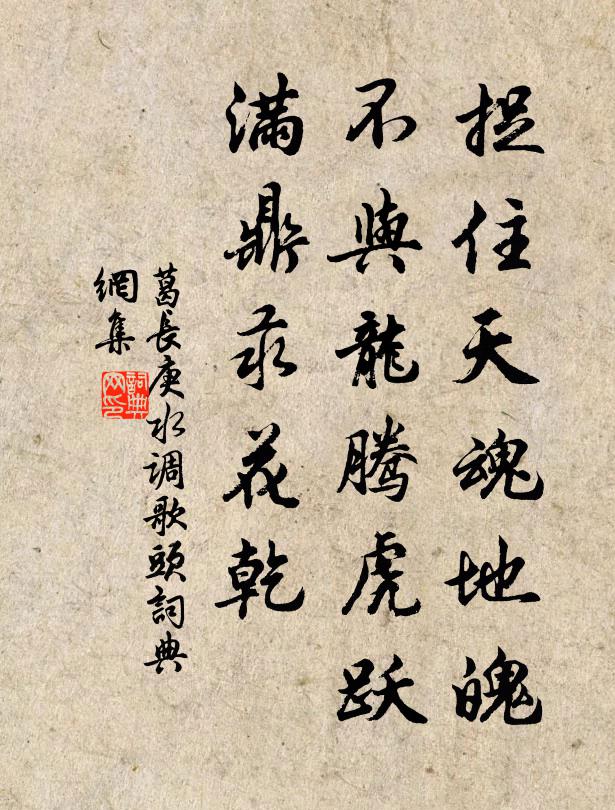 捉住天魂地魄
不與龍騰虎跃
滿鼎汞花乾
葛長庚水调歌頭詞典
網集
詞典
网印